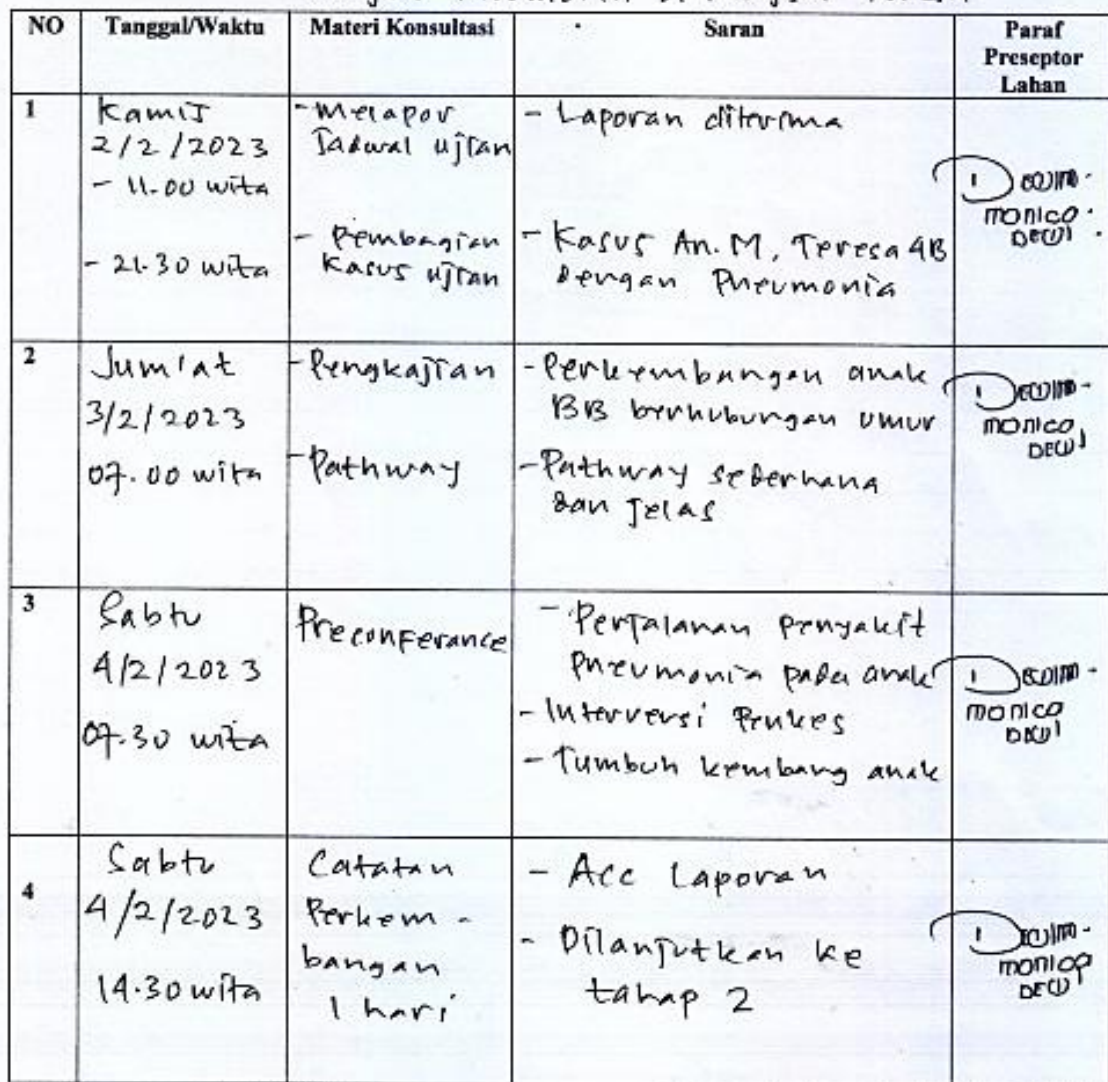 NO Tanggal/Waktu Materi Konsultasi Saran Paraf
Preseptor
Lahan
1 Kamis
2/2/2023
- 11.00 wita
- 21.30 wita
- Melapor
Jadwal ujian
- Pembagian
Kasus ujian
- Laporan diterima
- Kasus An. M, Teresa 4B
dengan Pneumonia
monica
DEWI
2 Jum'at
3/2/2023
07.00 wita
- Pengkajian
- Pathway
- Perkembangan anak
BB berhubungan umur
- Pathway sederhana
dan Jelas
monica
DEWI
3 Sabtu
4/2/2023
07.30 wita
Preconferance
- Perjalanan penyakit
Pneumonia pada anak
- Interversi Penkes
- Tumbuh kembang anak
monica
DEWI
4 Sabtu
4/2/2023
14.30 wita
Catatan
Perkem -
bangan
1 hari
- Acc Laporan
- Dilanjutkan ke
tahap 2
monica
DEWI